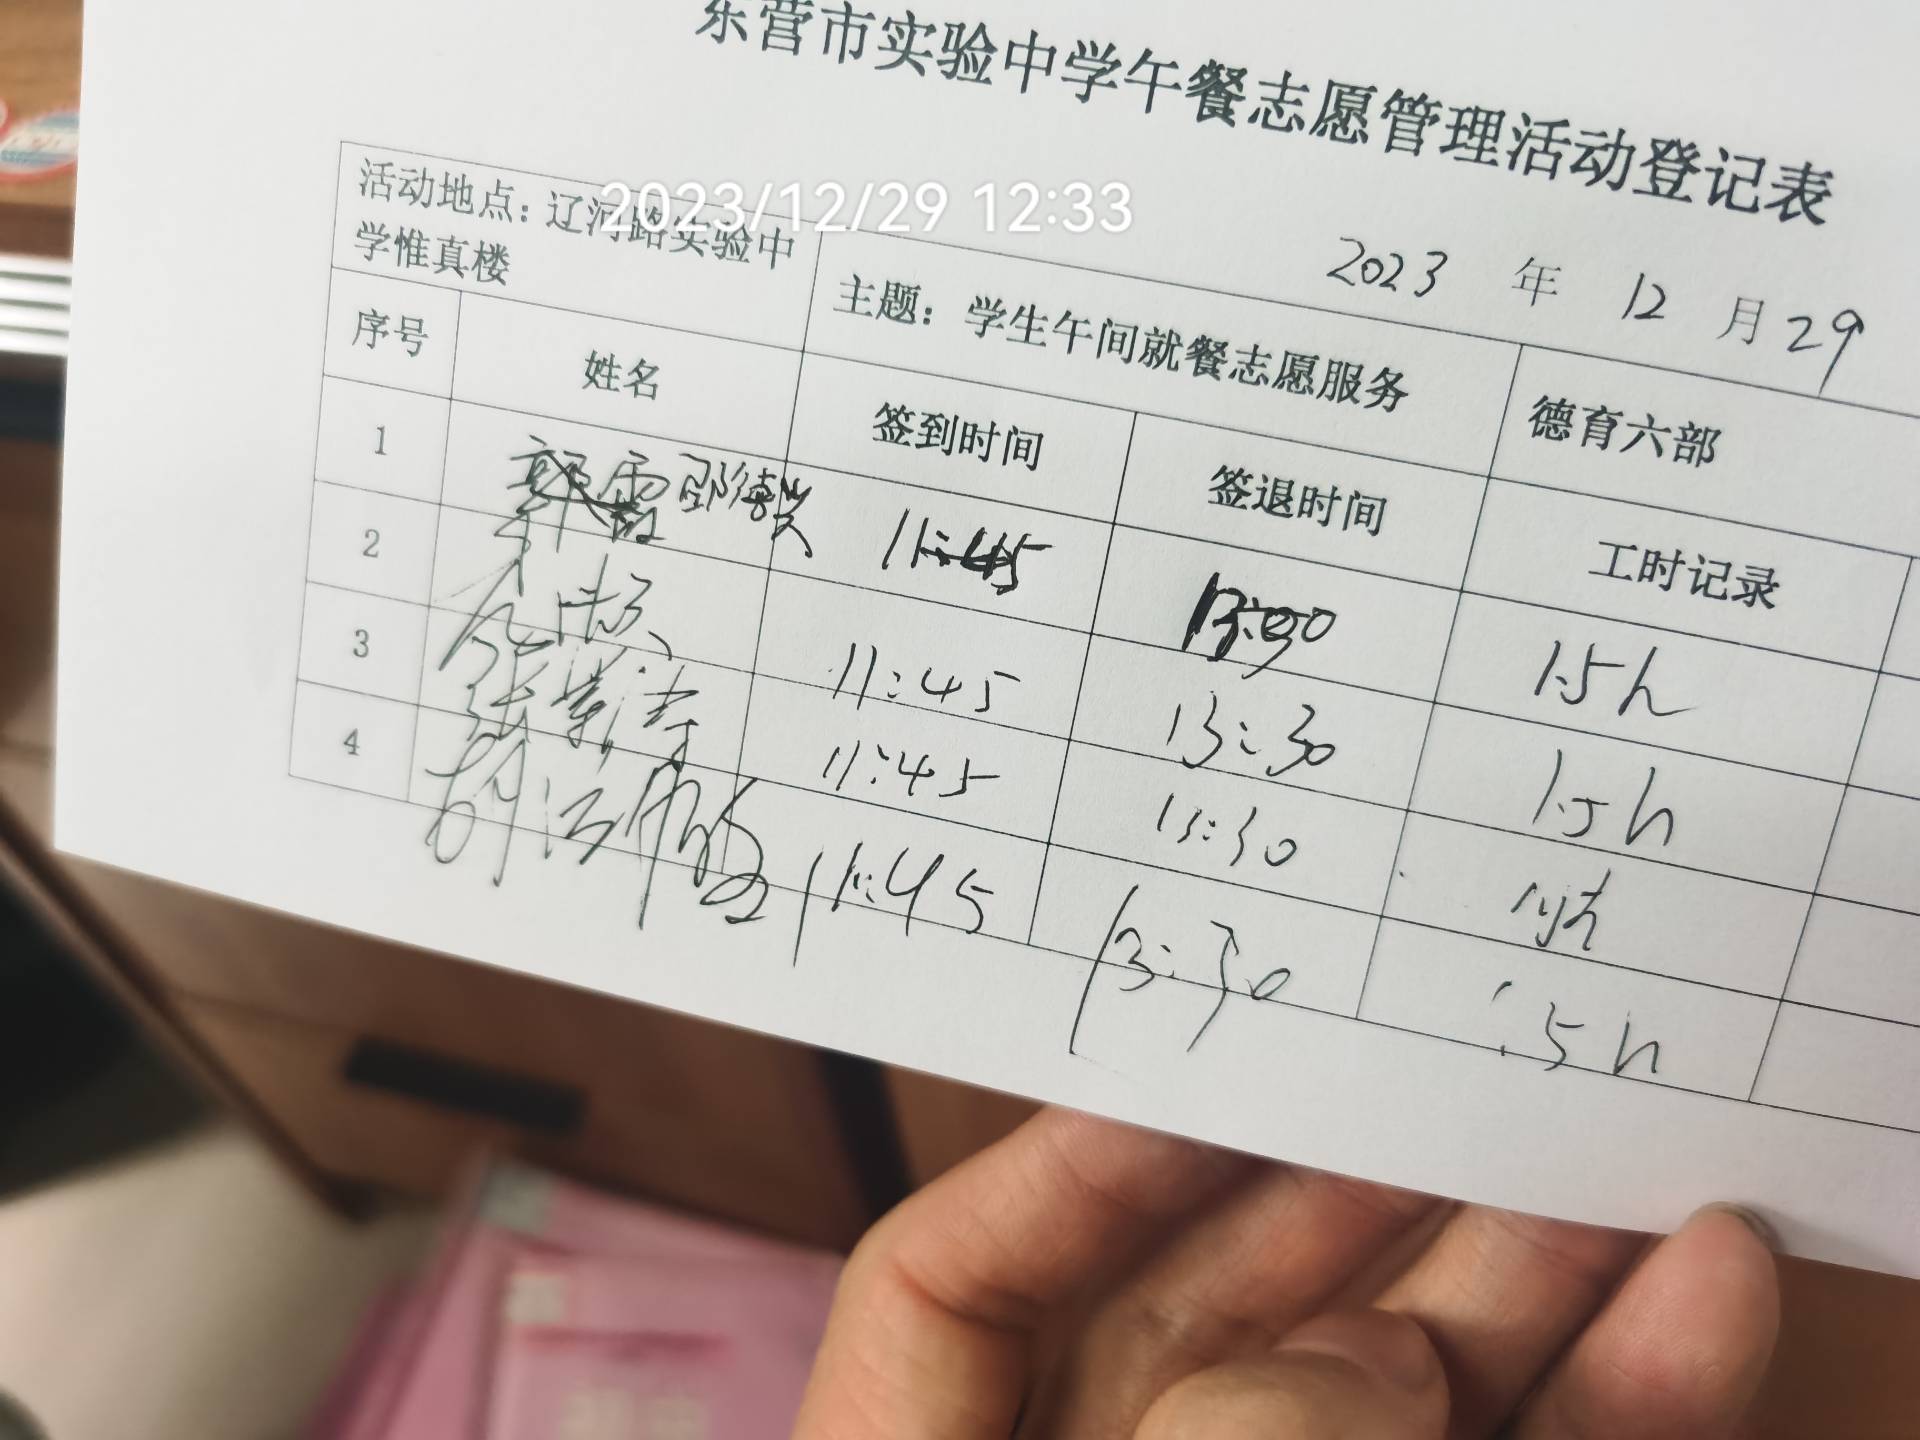 东营市实验中学午餐志愿管理活动登记表
2023/12/29 12:33
2023 年 12 月 29
活动地点：辽河路实验中
学惟真楼
主题：学生午间就餐志愿服务
德育六部
序号 姓名 签到时间 签退时间 工时记录
1 11:45 13:30 1.5h
2 11:45 13:30 1.5h
3 11:45 13:30
4 11:45 13:30